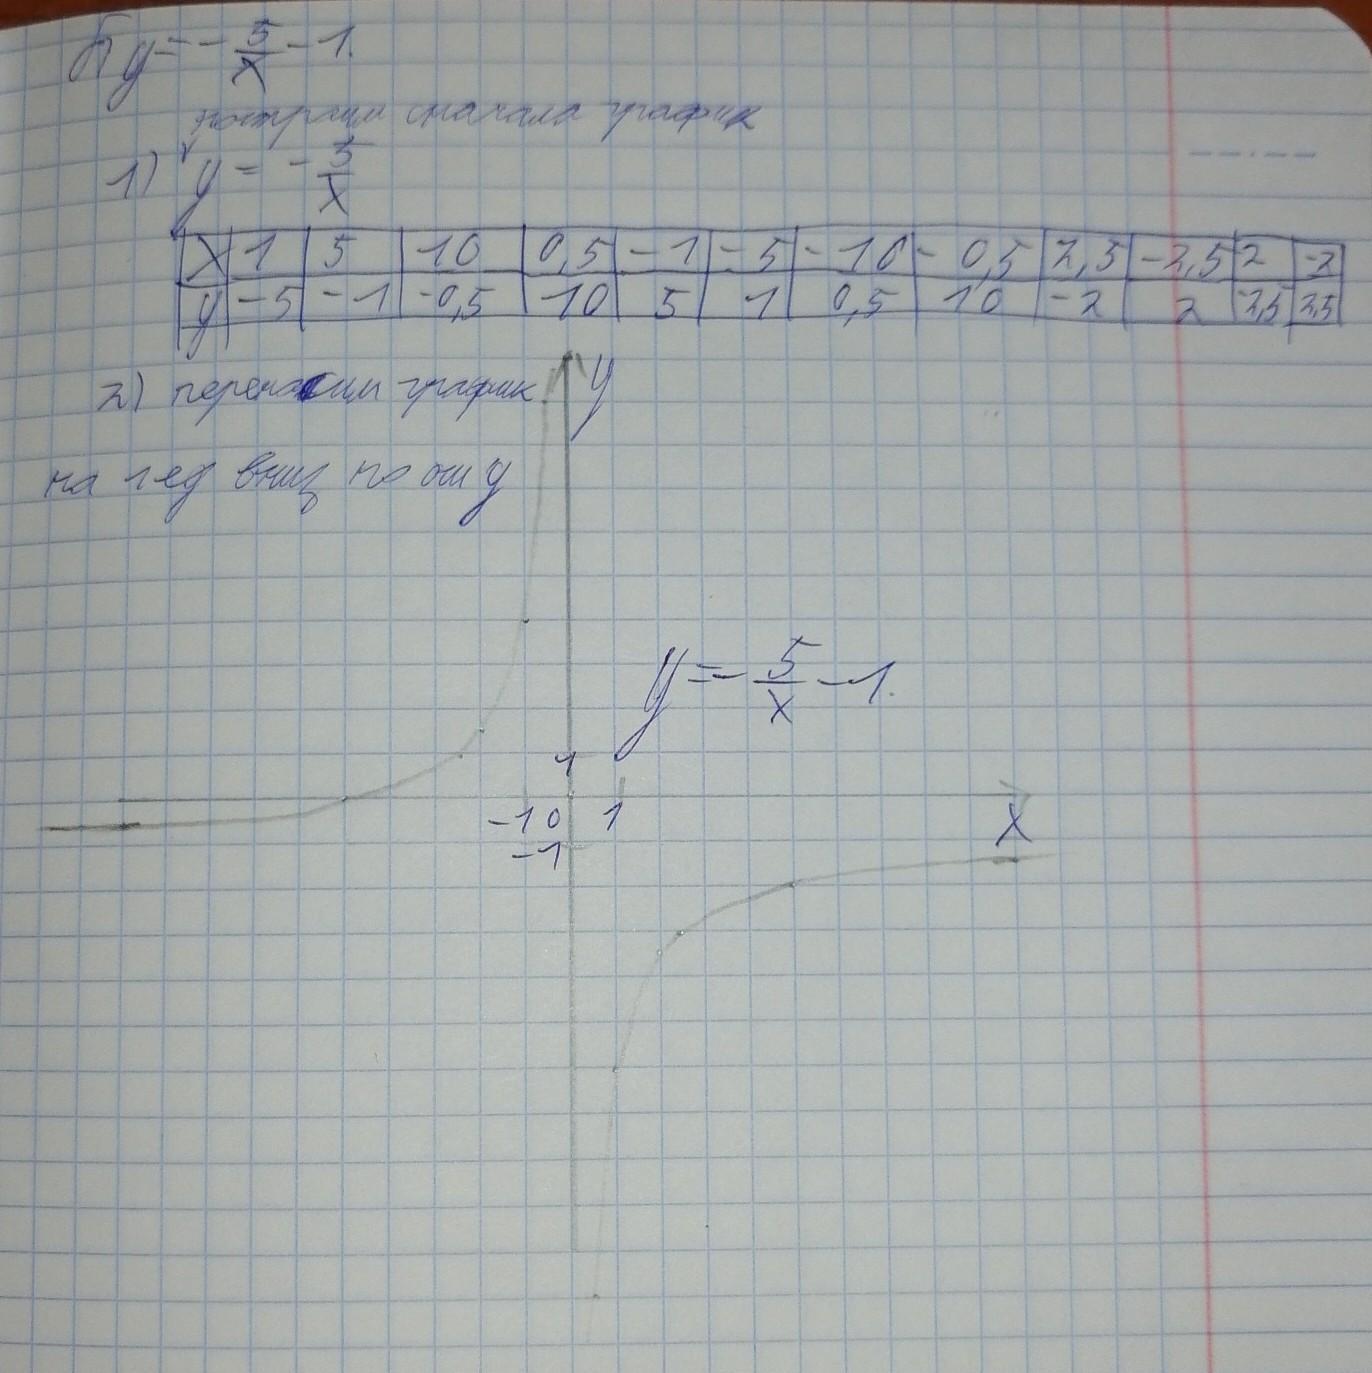 б) y = - 5/x - 1.
построим сначала график
1) y = - 5/x
x 1 5 10 0,5 -1 -5 -10 -0,5 2,5 -2,5 2 -2
y -5 -1 -0,5 -10 5 1 0,5 10 -2 2 -2,5 2,5
y
2) график
на 1 ед вниз по оси y
y = - 5/x - 1.
1
-1 0 1
x
-1